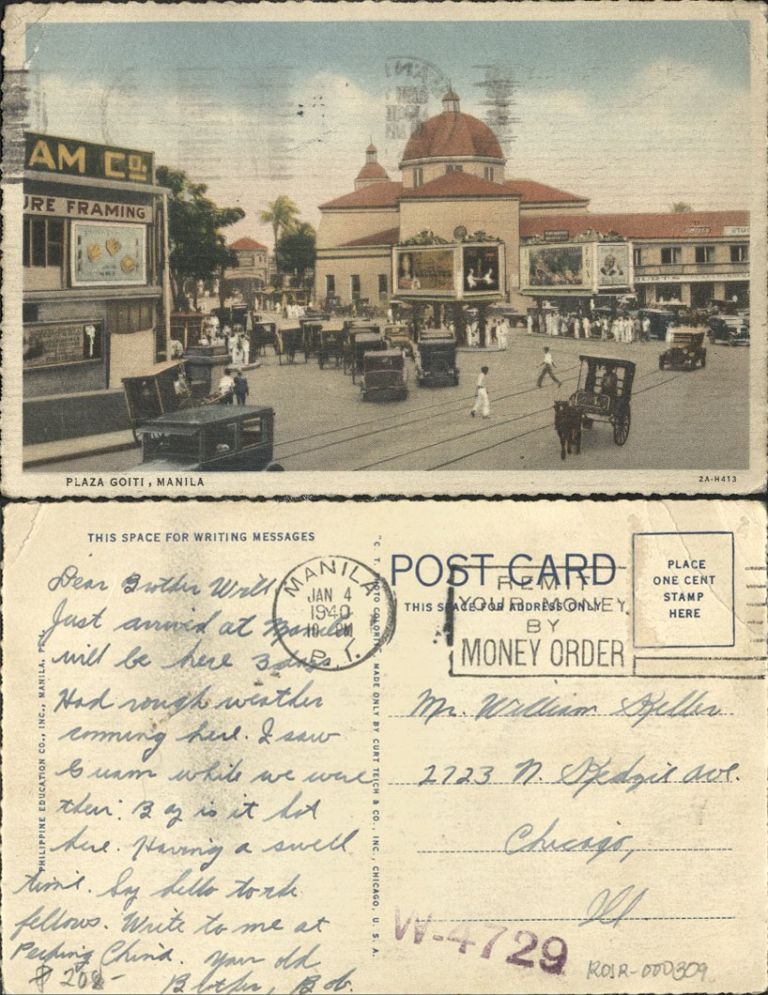 AM CO.
URE FRAMING
PLAZA GOITI, MANILA
2A-H413
THIS SPACE FOR WRITING MESSAGES
Dear Brother Will
Just arrived at Manila
will be here 3 days
Had rough weather
comming here. I saw
Guam while we were
their. Boy is it hot
here. Having a swell
time. Say hello to the
fellows. Write to me at
Peking China. Your old
Brother, Bob.
PHILIPPINE EDUCATION CO., INC., MANILA, P.I.
MADE ONLY BY CURT TEICH & CO., INC., CHICAGO, U. S. A.
MANILA
JAN 4
1940
P. I.
POST CARD
THIS SPACE FOR ADDRESS ONLY
REMIT
YOUR MONEY
BY
MONEY ORDER
PLACE
ONE CENT
STAMP
HERE
Mr. William Keller
2723 N. Kedzie Ave.
Chicago,
Ill
W-4729
ROIR-000309